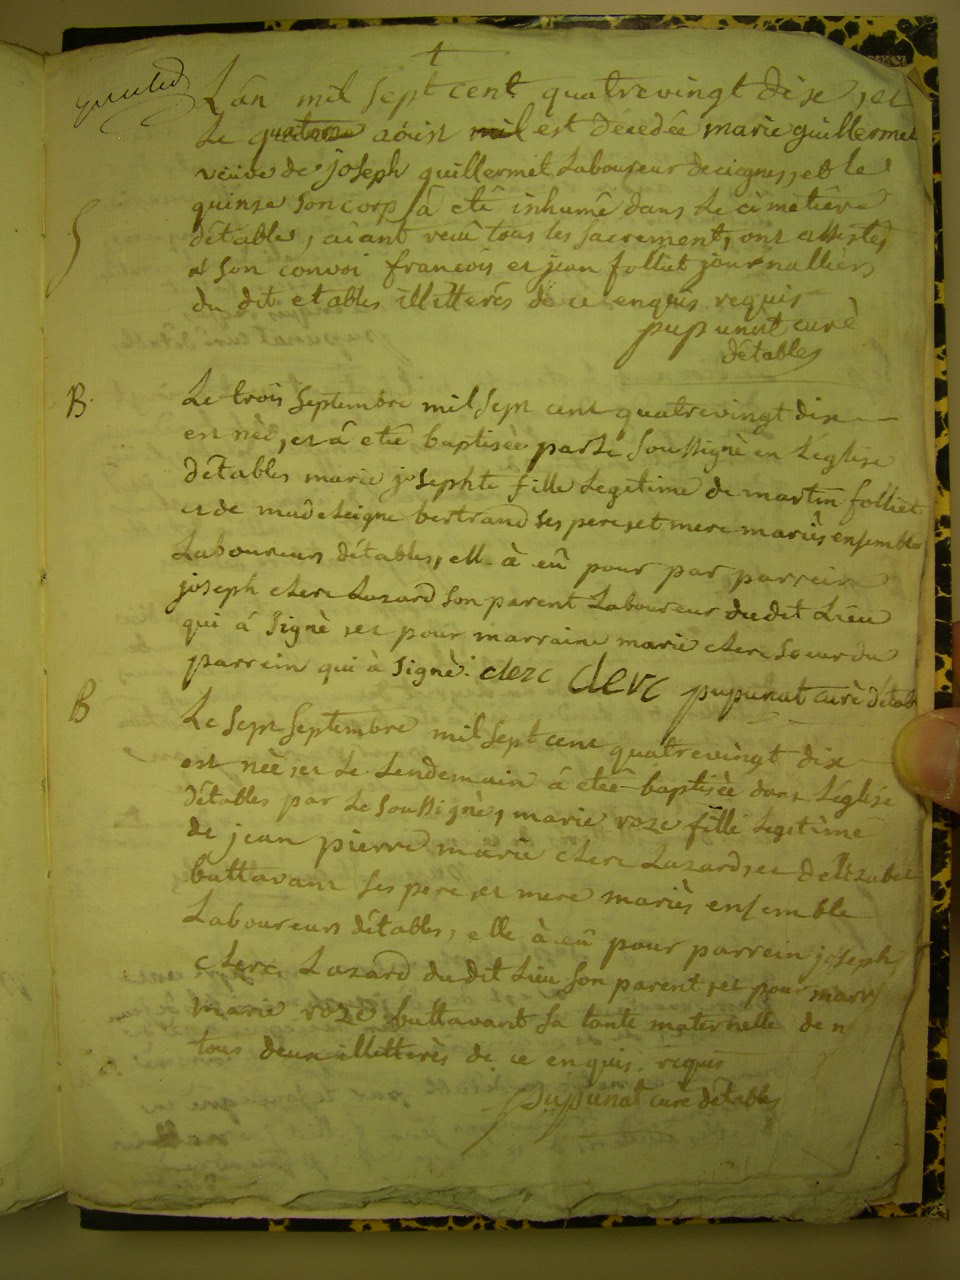 L'an mil sept cent quatrevingt dise, et
Le quatorse aoist mil est decedée marie guillermet
veuve de joseph guillermet Laboureur de cignes, et le
quinse son corps â eté inhumé dans le cimetière
détables, aiant recu tous les sacrement, ont assistés
a son convoi francois et jean folliet journalliers
du dit etables illitterés de ce enquis requis
pupunat curé
détables
B.
Le trois septembre mil sept cent quatrevingt dix
est née, et â eté baptisée par le soussigné en L'église
détables marie josephte fille Legetime de martin folliet
et de madeleigne bertrand ses pere, et mere mariés ensemble
Laboureurs détables, elle à eû pour par parrein
joseph clerc Lazard son parent Laboureur du dit Lieu
qui á signé, et pour marraine marie clerc soeur du
parrein qui à signé. clerc clerc pupunat curé détab
B
Le sept septembre mil sept cent quatrevingt dix
est née, et le Lendemain â eté baptisée dans L'église
détables par le soussigné, marie roze fille Legetime
de jean pierre marie clerc Lazard, et delizabet
buttavant ses pere, et mere mariés ensemble
Laboureurs détables, elle à eû pour parrein joseph
clerc Lazard du dit Lieu son parent, et pour marr
marie roze buttavant sa tante maternelle de n
tous deux illitterés de ce enquis. requis
pupunat curé détables